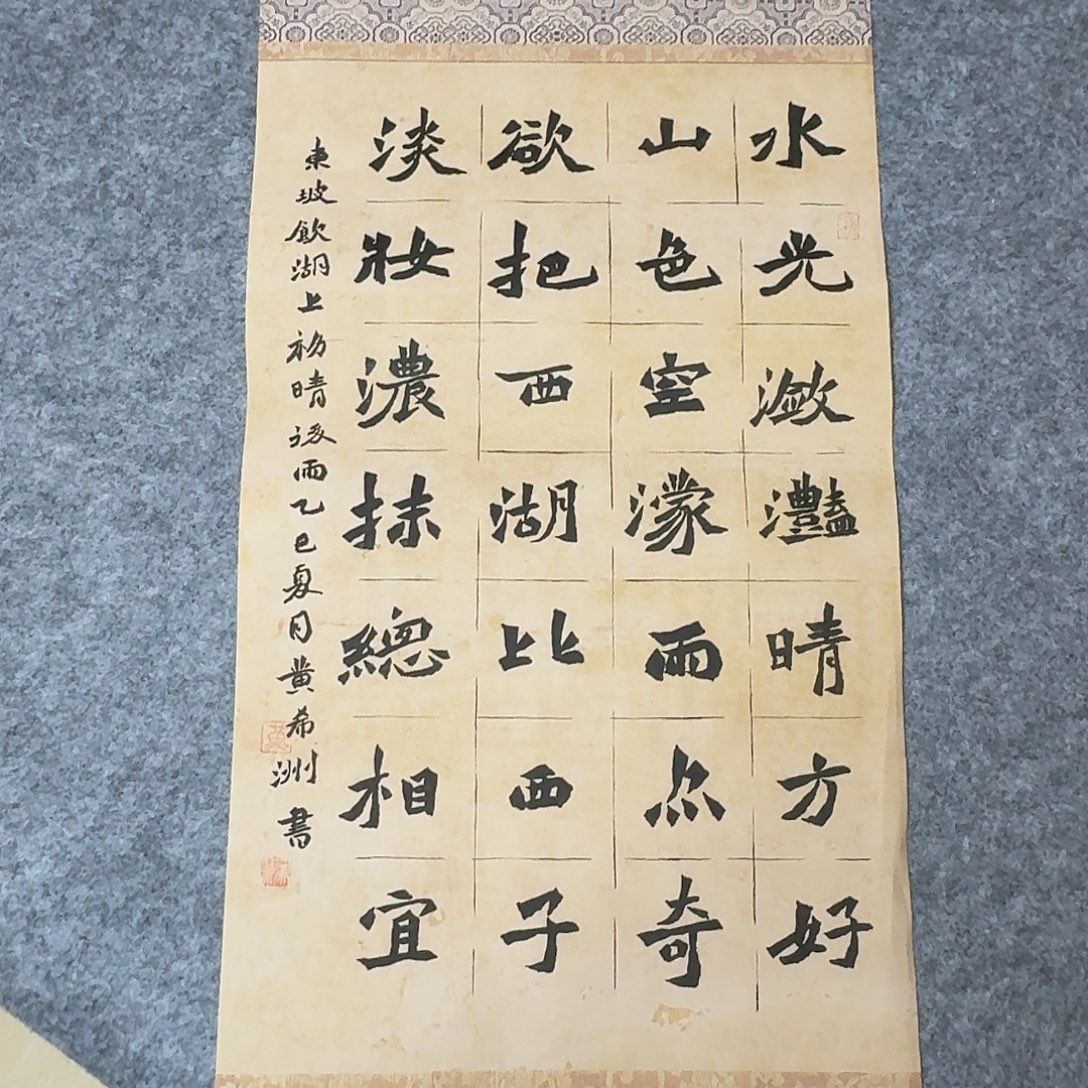 水光瀲灩晴方好
山色空濛雨亦奇
欲把西湖比西子
淡妝濃抹總相宜
東坡飲湖上初晴後雨乙巳夏月黄希洲書